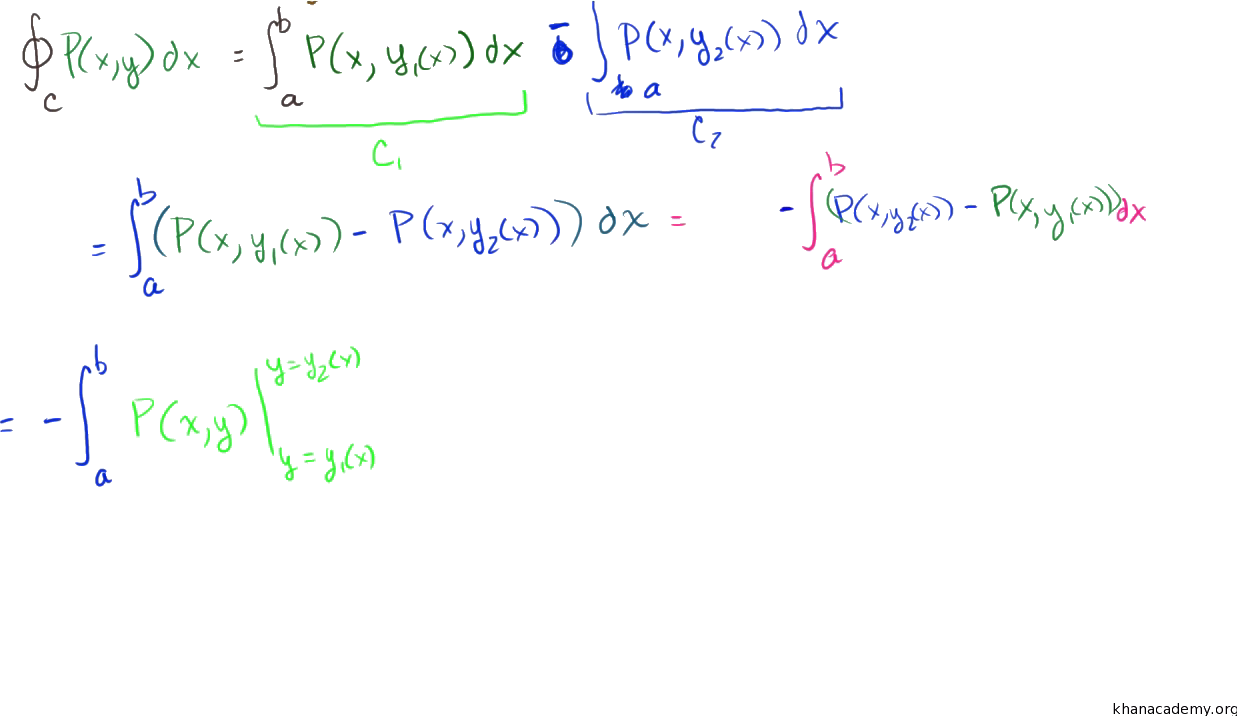 ∮_C P(x,y) dx = ∫_a^b P(x, y₁(x)) dx - ∫_a P(x, y₂(x)) dx
C₁ C₂
= ∫_a^b (P(x, y₁(x)) - P(x, y₂(x))) dx = - ∫_a^b (P(x, y₂(x)) - P(x, y₁(x))) dx
= - ∫_a^b P(x,y) |_{y = y₁(x)}^{y = y₂(x)}
khanacademy.org